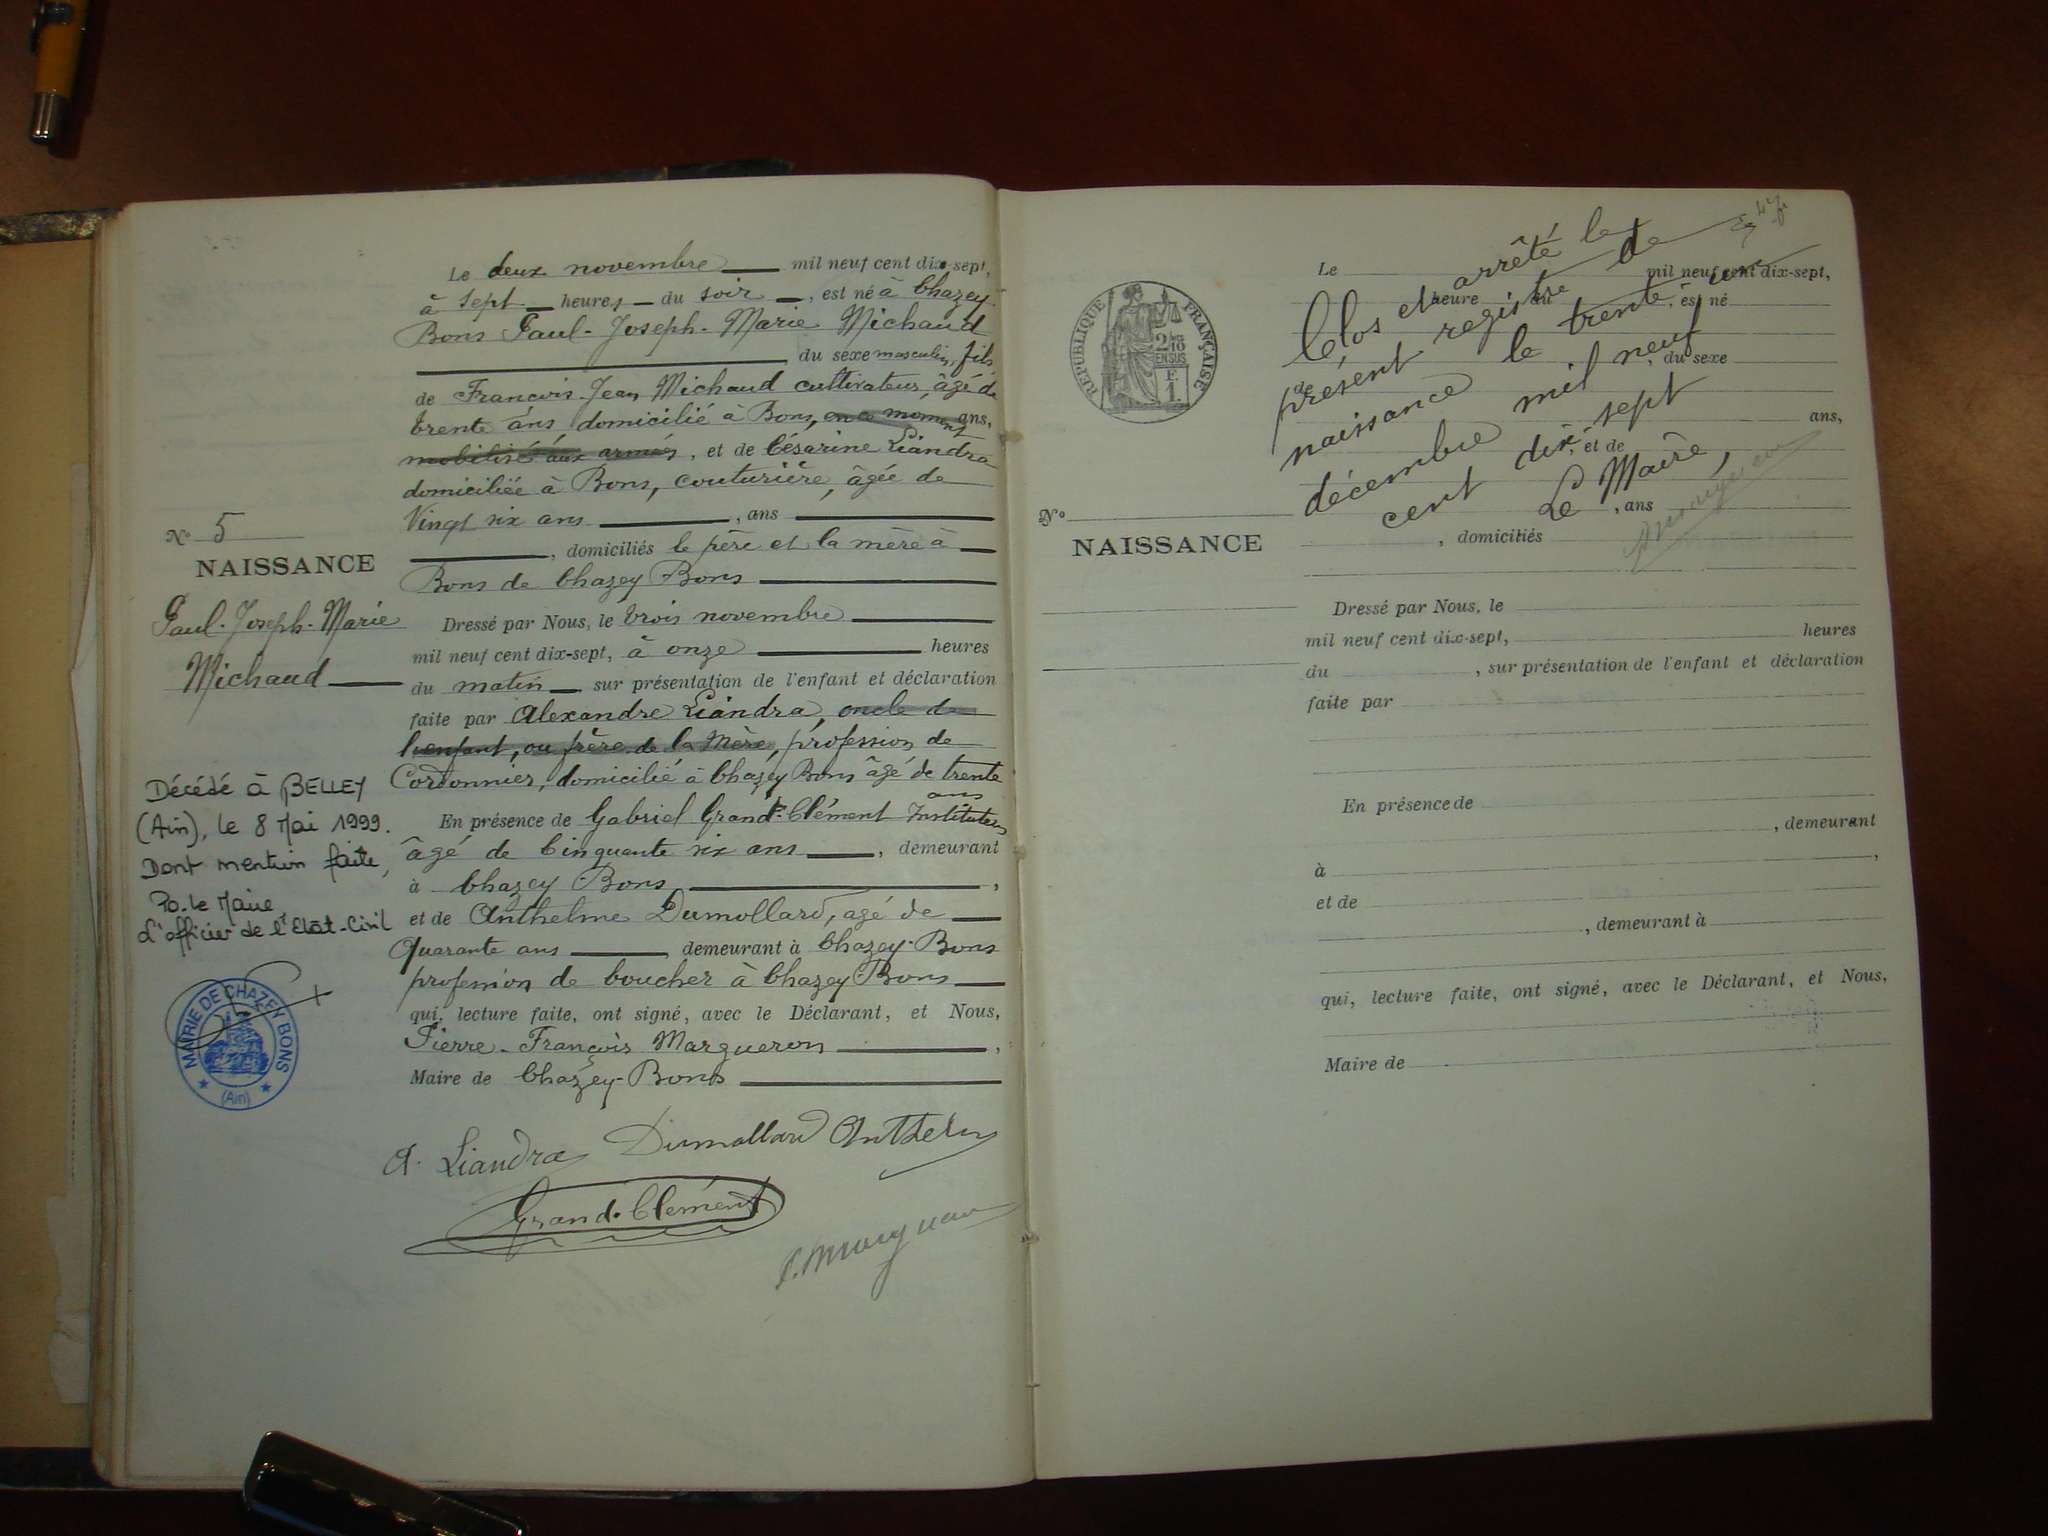 Le deux novembre mil neuf cent dix-sept,
à sept heures du soir, est né à Chazey-
Bons Paul-Joseph-Marie Michaud
du sexe masculin, fils
de François-Jean Michaud cultivateur, âgé de
trente ans, domicilié à Bons, en ce moment ans,
mobilisé aux armées, et de Césarine Liandra
domiciliée à Bons, couturière, âgée de
Vingt six ans, ans
, domiciliés le père et la mère à
Bons de Chazey Bons
N° 5
NAISSANCE
Paul-Joseph-Marie
Michaud
Dressé par Nous, le trois novembre
mil neuf cent dix-sept, à onze heures
du matin sur présentation de l'enfant et déclaration
faite par Alexandre Liandra, oncle de
l'enfant, ou frère de la Mère, profession de
Cordonnier, domicilié à Chazey Bons âgé de trente
ans
En présence de Gabriel Grand-Clément Instituteur
âgé de Cinquante six ans, demeurant
à Chazey Bons,
et de Anthelme Dumollard, agé de
Quarante ans demeurant à Chazey-Bons
profession de boucher à Chazey-Bons
qui, lecture faite, ont signé, avec le Déclarant, et Nous,
Pierre-François Margueron,
Maire de Chazey-Bons
A. Liandra Dumollard Anthelm
Grand-Clément
Décédé à BELLEY
(Ain), le 8 Mai 1999.
Dont mention faite,
Po. le Maire
L'officier de l'Etat-Civil
MAIRIE DE CHAZEY BONS
(Ain)
RÉPUBLIQUE FRANÇAISE
Clos et arrêté le
présent registre de
naissance le trente un
décembre mil neuf
cent dix-sept
Le Maire,
Le mil neuf cent dix-sept,
heure du, est né
du sexe
de
ans,
et de
, ans
, domiciliés
N°
NAISSANCE
Dressé par Nous, le
mil neuf cent dix-sept, heures
du, sur présentation de l'enfant et déclaration
faite par
En présence de
, demeurant
à,
et de
, demeurant à
qui, lecture faite, ont signé, avec le Déclarant, et Nous,
Maire de